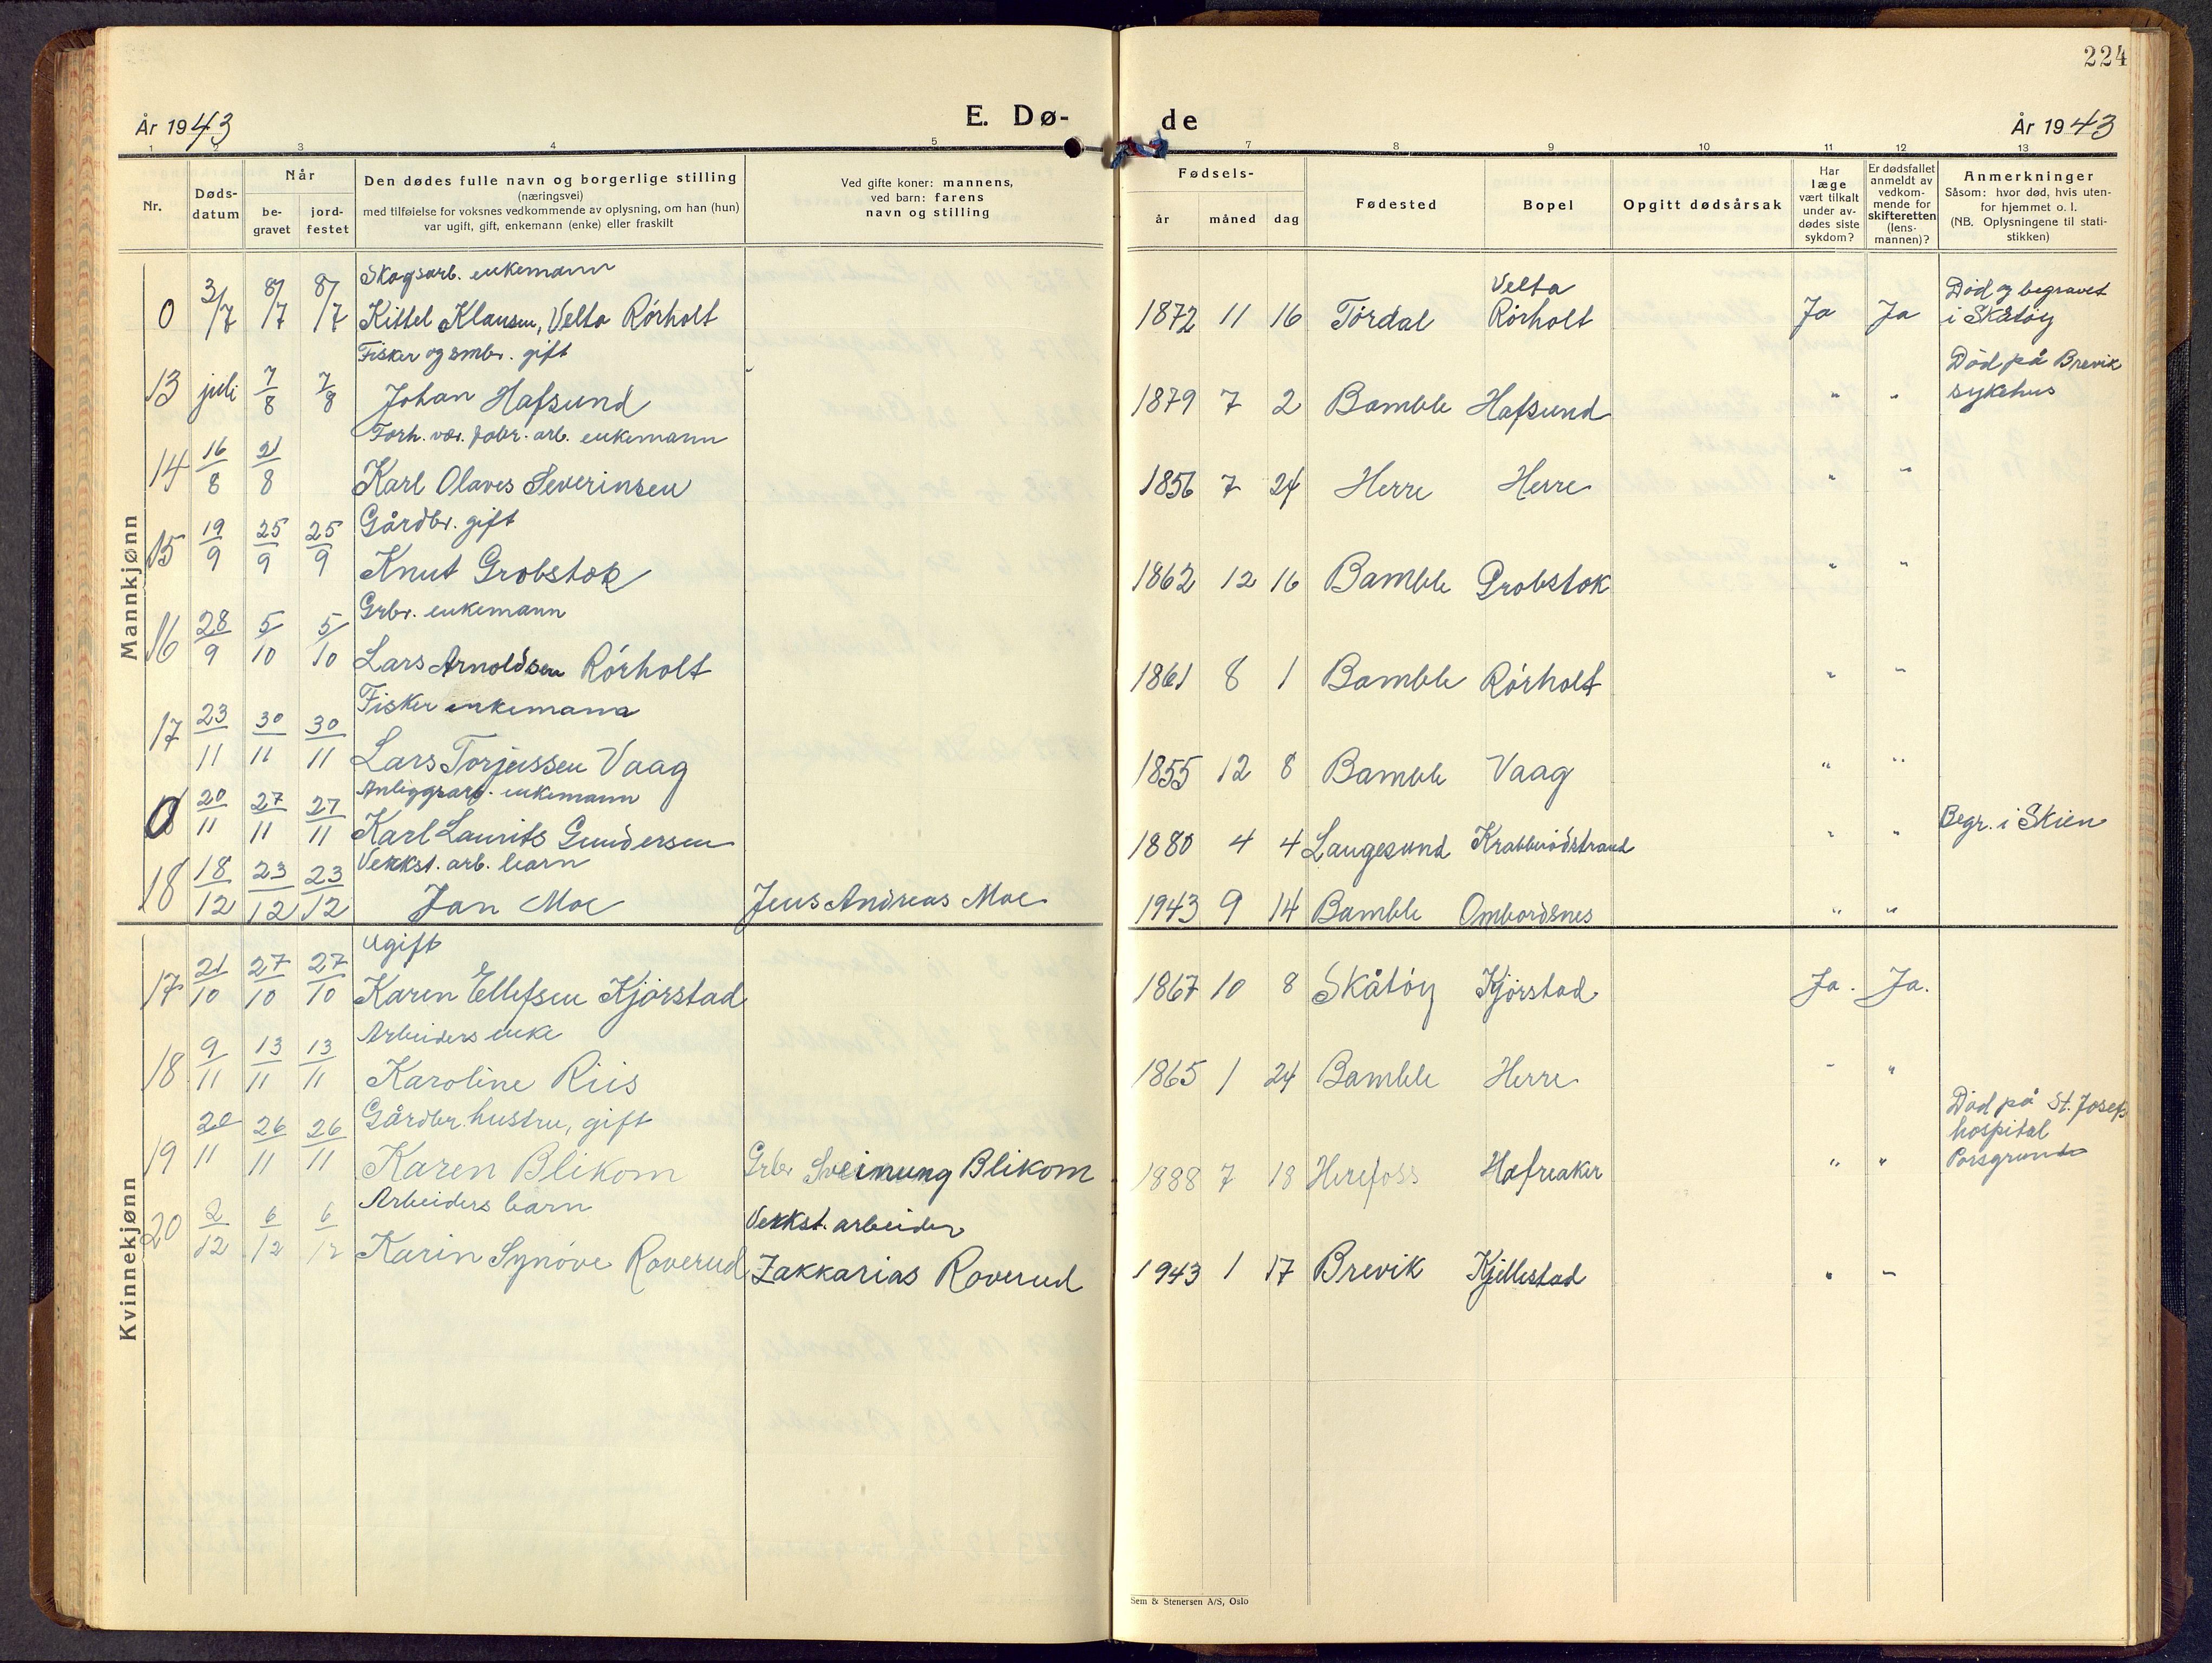 224
År 1943
E. Dø-
de
År 1943
1 2 3 4 5 7 8 9 10 11 12 13
Nr.
Døds-
datum
Når
be-
gravet
jord-
festet
Den dødes fulle navn og borgerlige stilling
(næringsvei)
med tilføielse for voksnes vedkommende av oplysning, om han (hun)
var ugift, gift, enkemann (enke) eller fraskilt
Ved gifte koner: mannens,
ved barn: farens
navn og stilling
Fødsels-
år måned dag
Fødested
Bopel
Opgitt dødsårsak
Har
læge
vært tilkalt
under av-
dødes siste
sykdom?
Er dødsfallet
anmeldt av
vedkom-
mende for
skifteretten
(lens-
mannen)?
Anmerkninger
Såsom: hvor død, hvis uten-
for hjemmet o. l.
(NB. Oplysningene til stati-
stikken)
Mannkjønn
Skogsarb. enkemann
0 3/7 8/7 8/7 Kittel Klausen, Velta Rörholt 1872 11 16 Tördal Velta Rörholt Ja Ja Död og begravet
i Skåtöy
Fisker og smbr. gift
13 juli 7/8 7/8 Johan Hafsund 1879 7 2 Bamble Hafsund " " Död på Brevik
sykehus
Forh. vær. fabr. arb. enkemann
14 16/8 21/8 Karl Olaves Severinsen 1856 7 24 Herre Herre " "
Gårdbr. gift
15 19/9 25/9 25/9 Knut Grobstok 1862 12 16 Bamble Grobstok " "
Grbr. enkemann
16 28/9 5/10 5/10 Lars Arnoldsen Rörholt 1861 8 1 Bamble Rörholt " "
Fisker enkemann
17 23/11 30/11 30/11 Lars Torjussen Vaag 1855 12 8 Bamble Vaag " "
Anleggsarb. enkemann
0 20/11 27/11 27/11 Karl Laurits Gundersen 1880 4 4 Langesund Krabberödstrand " " Begr. i Skien
Verkst. arb. barn
18 18/12 23/12 23/12 Jan Moe Jens Andreas Moe 1943 9 14 Bamble Ombordsnes " "
Kvinnekjønn
Ugift
17 21/10 27/10 27/10 Karen Ellefsen Kjörstad 1867 10 8 Skåtöy Kjörstad Ja. Ja.
Arbeiders enke
18 9/11 13/11 13/11 Karoline Riis 1865 1 24 Bamble Herre " "
Gårdbr. hustru, gift
19 20/11 26/11 26/11 Karen Blikom Grbr Sveinung Blikom 1888 7 18 Herefoss Hafreaker " " Död på St. Josefs
hospital
Porsgrund
Arbeiders barn Verkst. arbeider
20 2/12 6/12 6/12 Karin Synöve Roverud Zakkarias Roverud 1943 1 17 Brevik Kjellestad " "
Sem & Stenersen A/S, Oslo